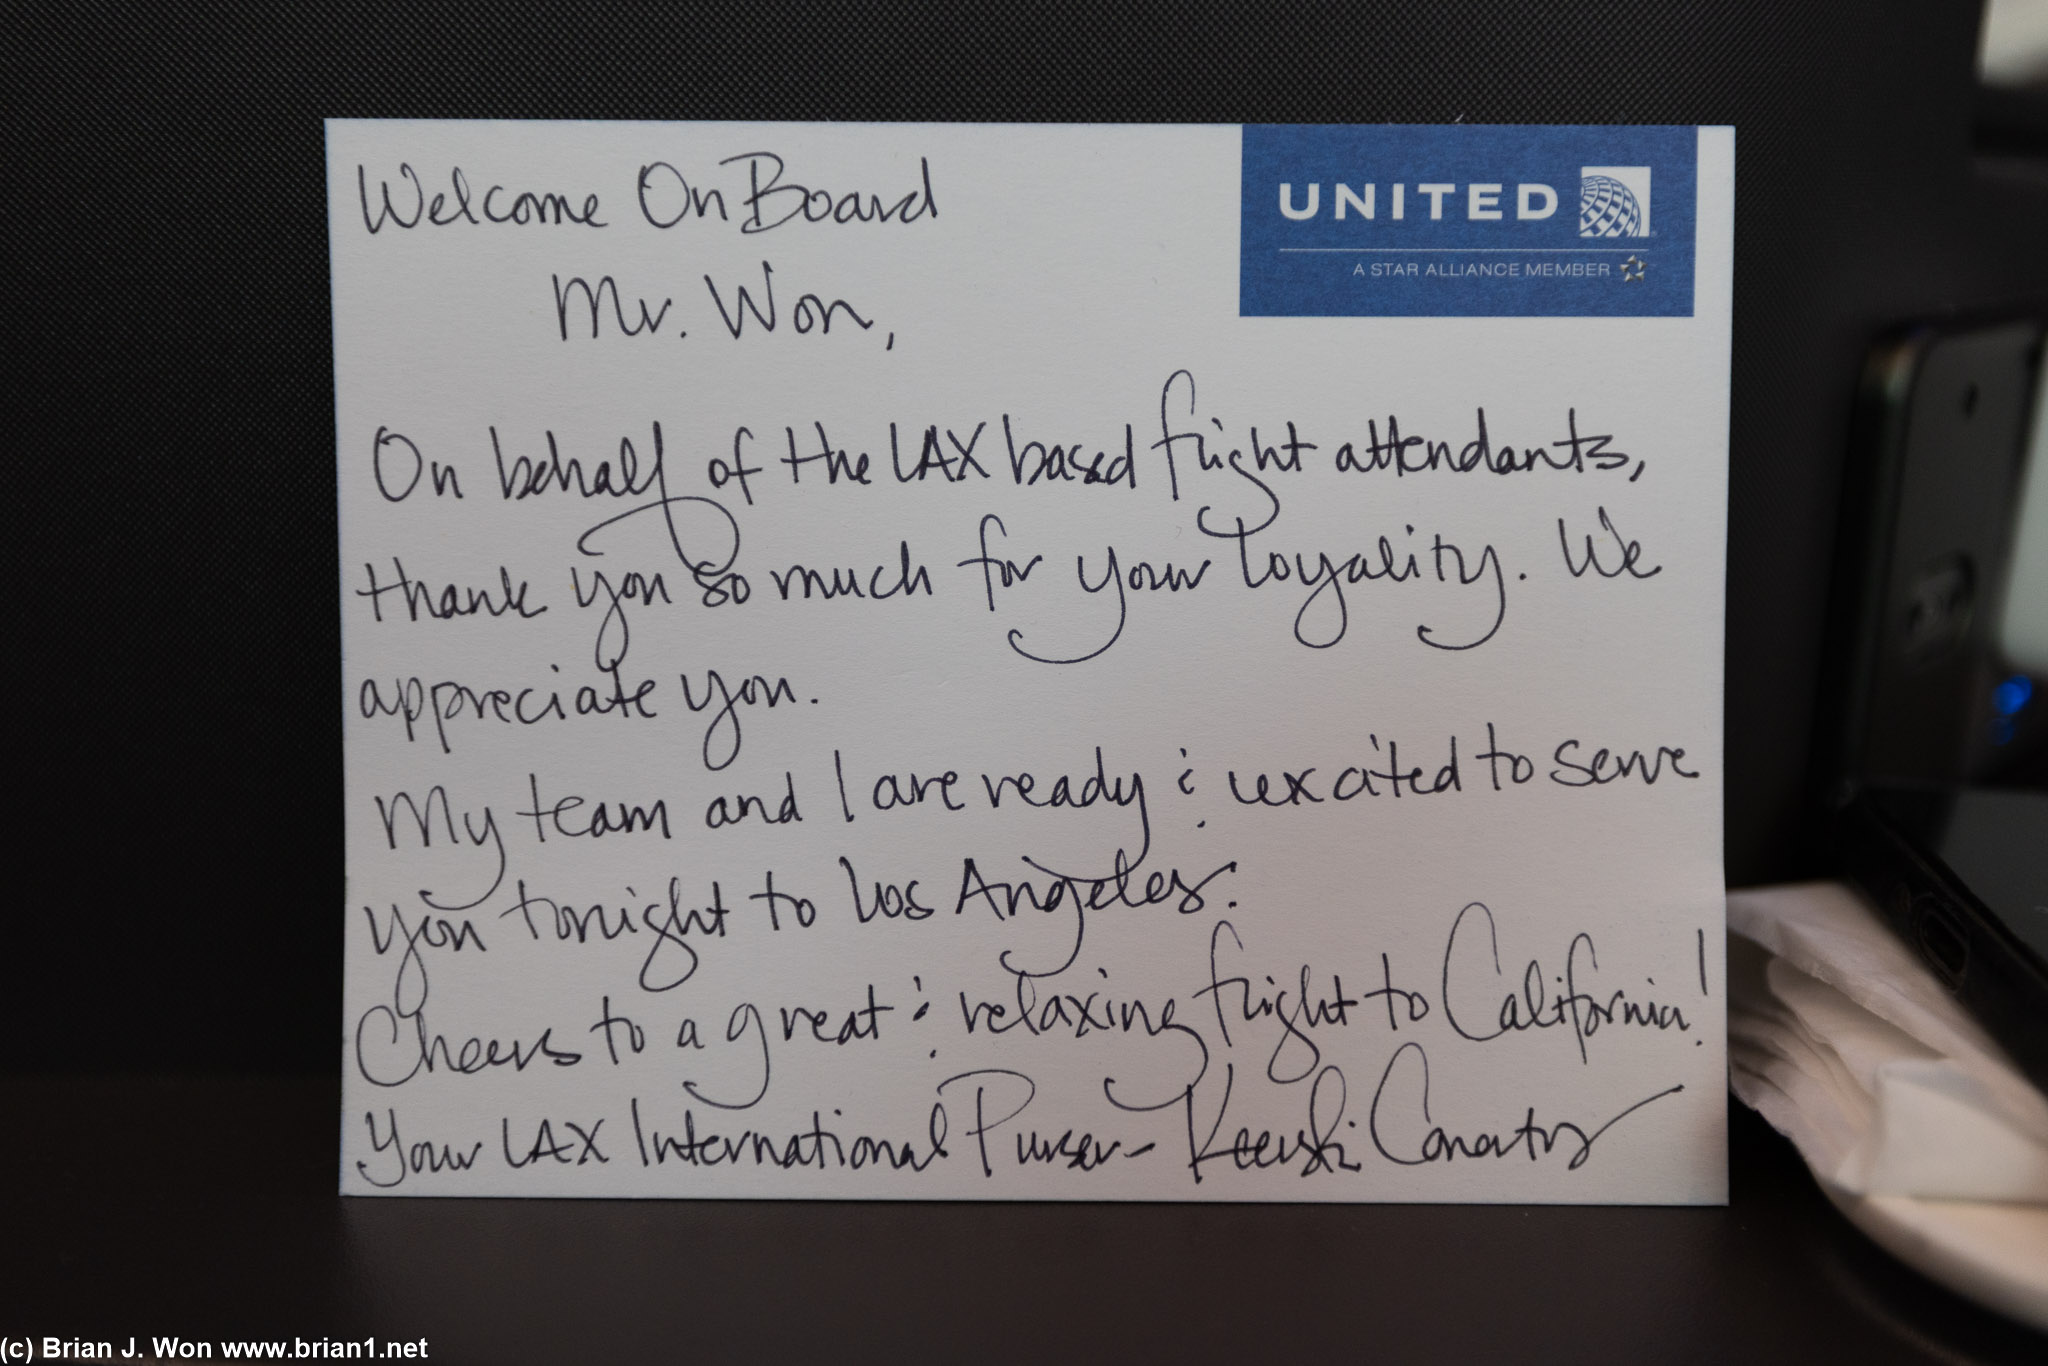 Welcome On Board
UNITED
A STAR ALLIANCE MEMBER
Mr. Won,
On behalf of the LAX based flight attendants,
thank you so much for your loyality. We
appreciate you.
My team and I are ready & excited to serve
you tonight to Los Angeles.
Cheers to a great & relaxing flight to California!
Your LAX International Purser-
(c) Brian J. Won www.brian1.net